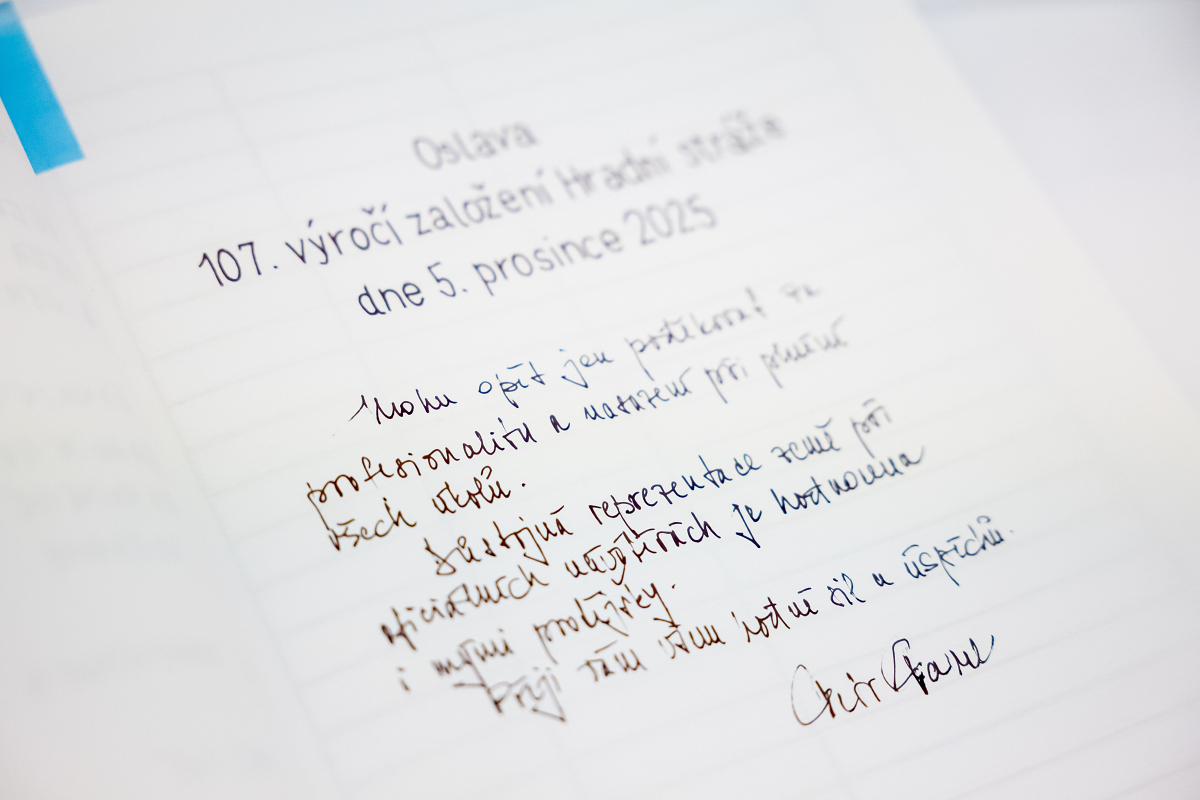 Oslava
107. výročí založení Hradní stráže
dne 5. prosince 2025
Mohu opět jen poděkovat za
profesionalitu a nasazení při plnění
všech úkolů.
Důstojná reprezentace země při
oficiálních návštěvách je hodnocena
i mými protějšky.
Přeji vám všem hodně sil a úspěchů.
Petr Pavel